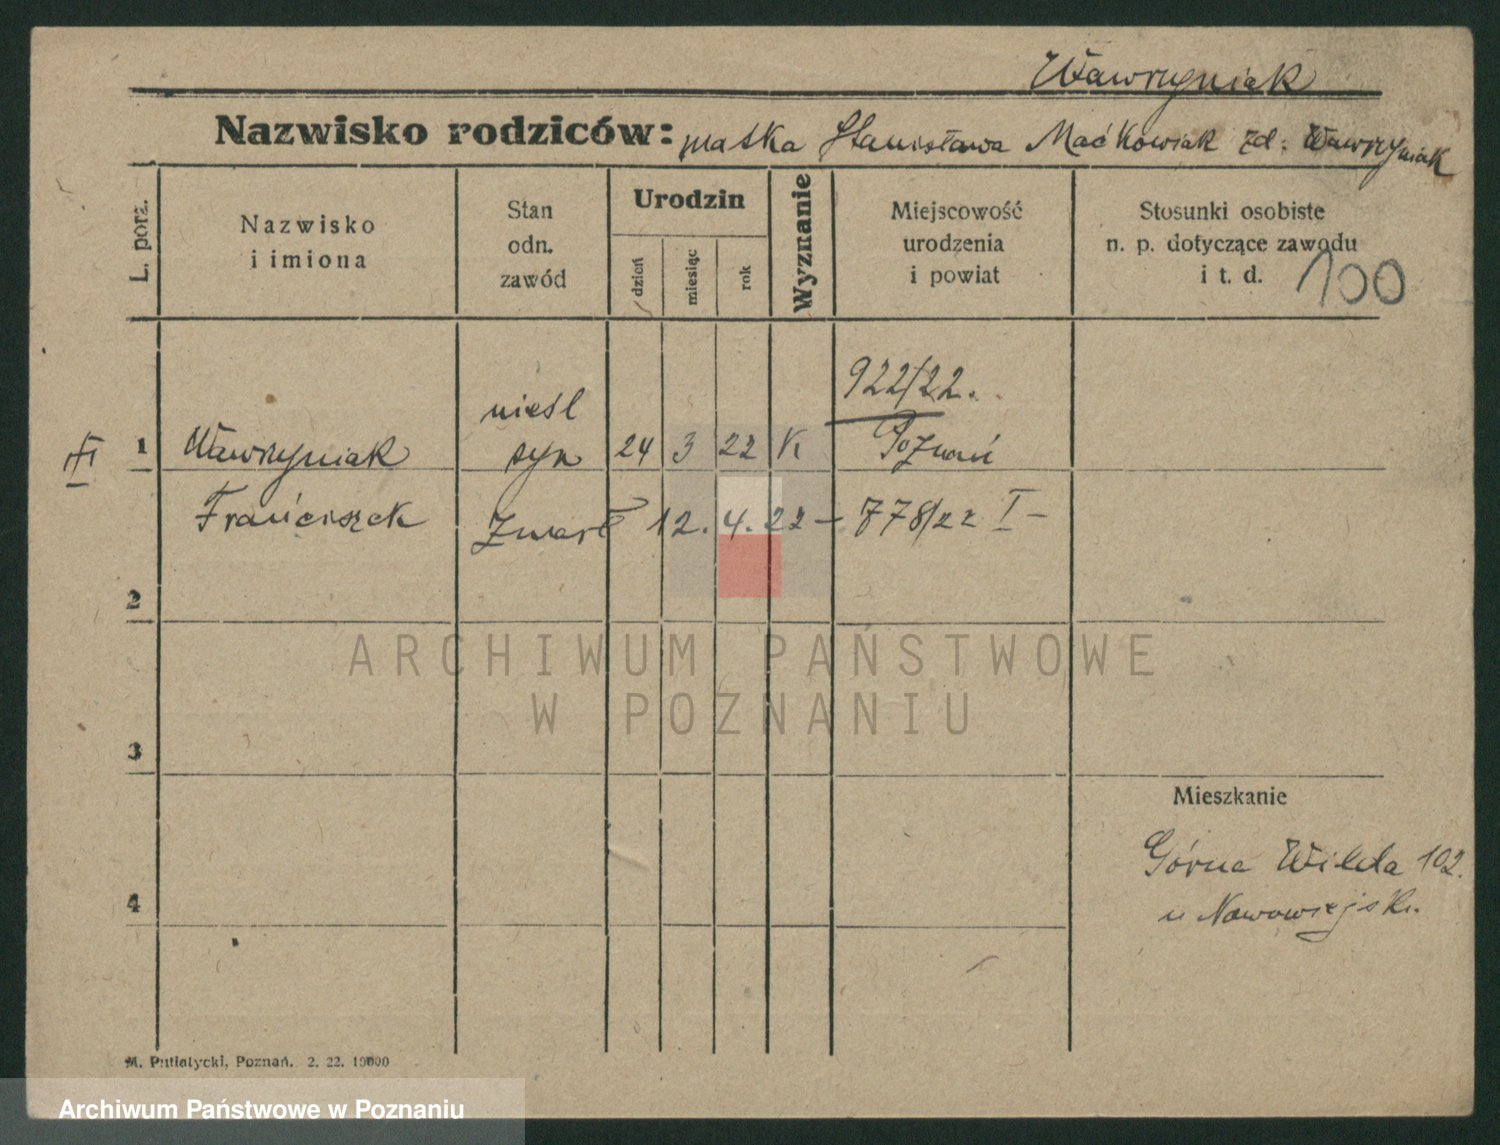 Wawrzyniak
Nazwisko rodziców: matka Stanisława Maćkowiak zd. Wawrzyniak
L. porz.
Nazwisko
i imiona
Stan
odn.
zawód
Urodzin
dzień
miesiąc
rok
Wyznanie
Miejscowość
urodzenia
i powiat
Stosunki osobiste
n. p. dotyczące zawodu
i t. d.
100
922/22.
nieśl
1 Wawrzyniak syn 24 3 22 K Poznań
Franciszek Zmarł 12. 4. 22 – 778/22 I –
2
ARCHIWUM PAŃSTWOWE
W POZNANIU
3
Mieszkanie
Górna Wilda 102.
4
u Nowowiejski.
M. Putiatycki, Poznań. 2. 22. 10000
Archiwum Państwowe w Poznaniu